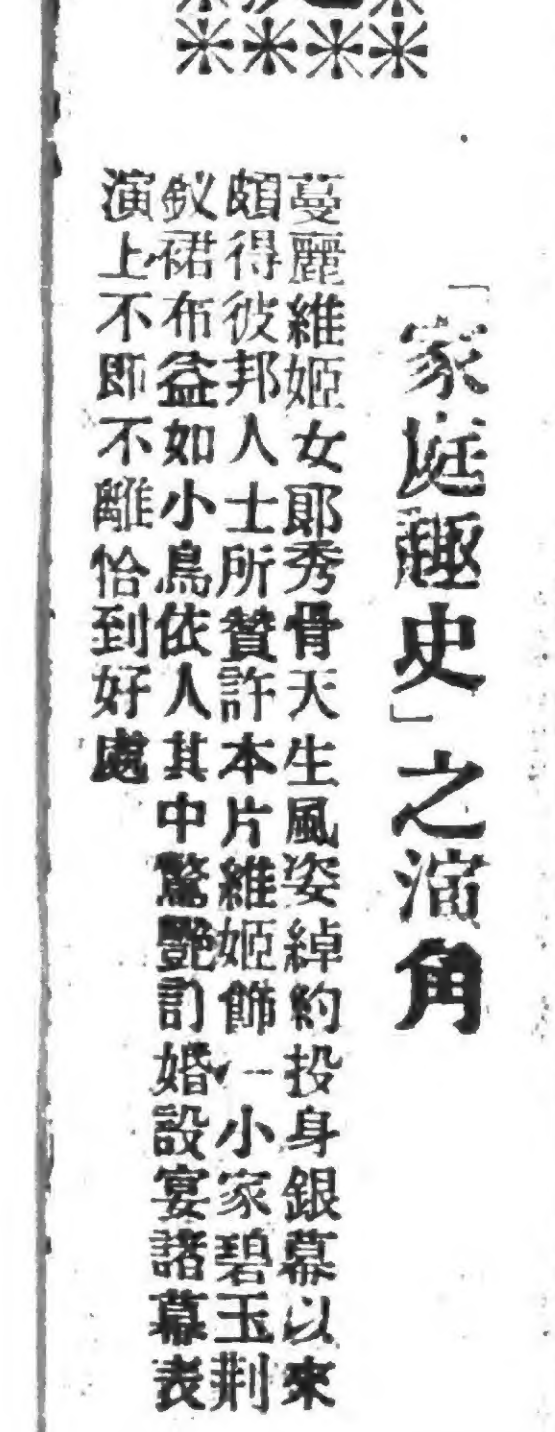 「家庭趣史」之演角
蔓麗維姬女郎秀骨天生風姿綽約投身銀幕以來
頗得彼邦人士所贊許本片維姬飾一小家碧玉荆
釵裙布益如小鳥依人其中驚艷訂婚設宴諸幕表
演上不即不離恰到好處